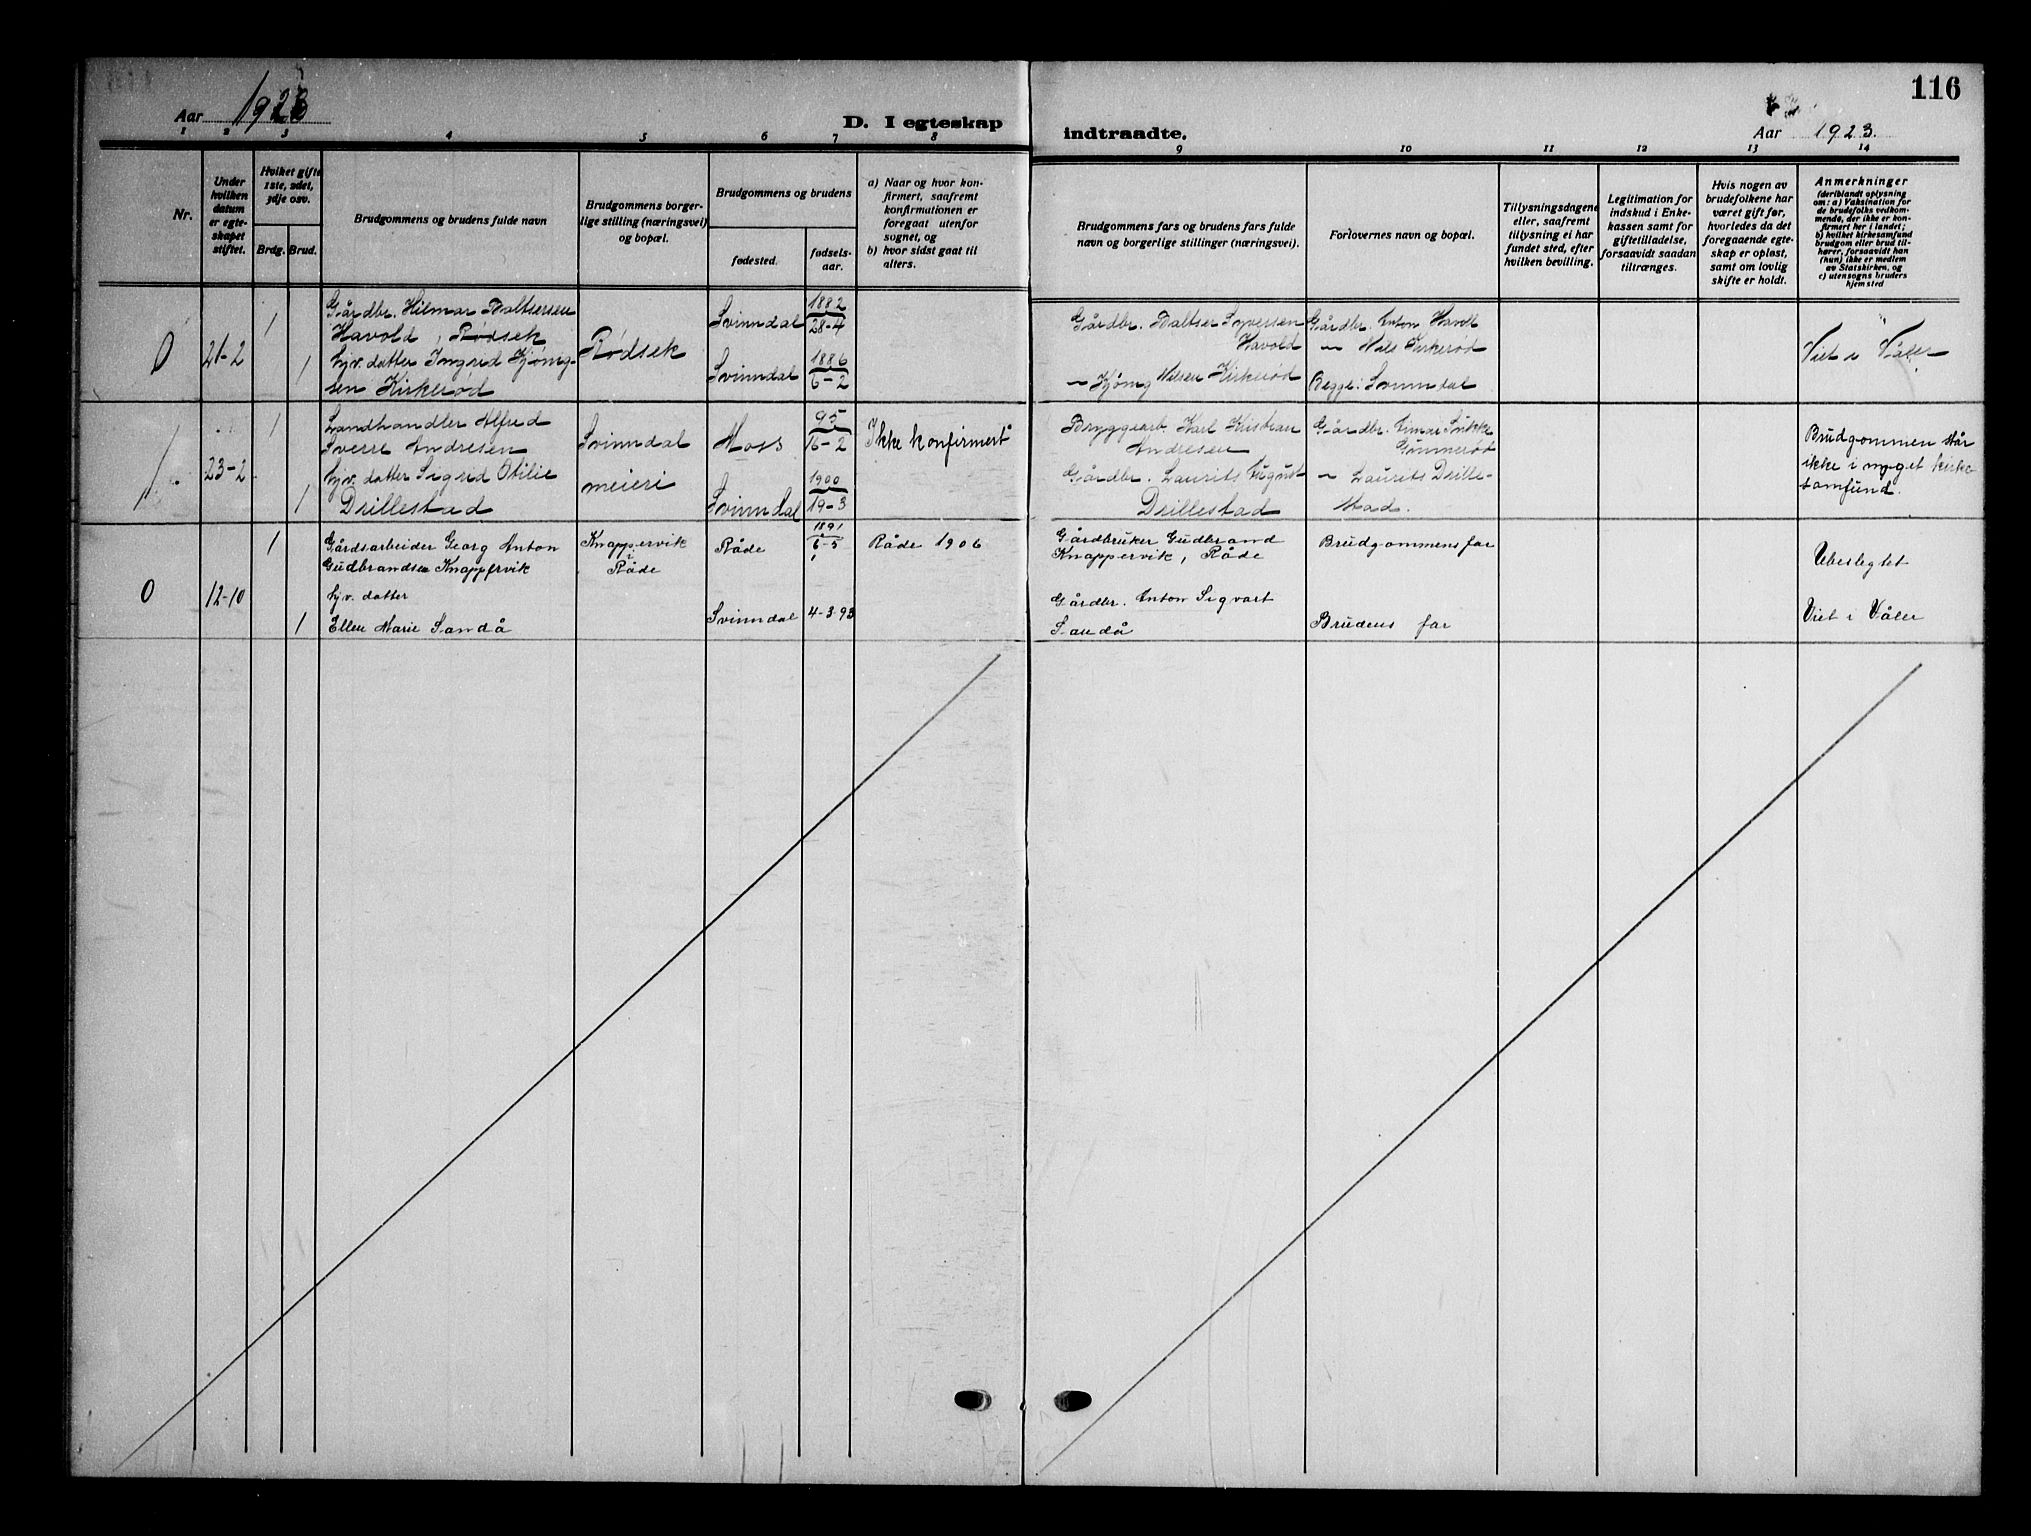 116
Aar 1923
D. I egteskap
indtraadte.
Aar 1923.
1 2 3 4 5 6 7 8
9 10 11 12 13 14
Nr.
Under
hvilken
datum
er egte-
skapet
stiftet.
Hvilket gifte
1ste, 2det,
3dje osv.
Brdg. Brud.
Brudgommens og brudens fulde navn
Brudgommens borger-
lige stilling (næringsvei)
og bopæl.
Brudgommens og brudens
fødested.
fødsels-
aar.
a) Naar og hvor kon-
firmert, saafremt
konfirmationen er
foregaat utenfor
sognet, og
b) hvor sidst gaat til
alters.
Brudgommens fars og brudens fars fulde
navn og borgerlige stillinger (næringsvei).
Forlovernes navn og bopæl.
Tillysningsdagene
eller, saafremt
tillysning ei har
fundet sted, efter
hvilken bevilling.
Legitimation for
indskud i Enke-
kassen samt for
giftetilladelse,
forsaavidt saadan
tiltrænges.
Hvis nogen av
brudefolkene har
været gift før,
hvorledes da det
foregaaende egte-
skap er opløst,
samt om lovlig
skifte er holdt.
Anmerkninger
(deriblandt oplysning
om: a) Vaksination for
de brudefolks vedkom-
mende, der ikke er kon-
firmert her i landet;
b) hvilket kirkesamfund
brudgom eller brud til-
hører, forsaavidt han
(hun) ikke er medlem
av Statskirken, og
c) utensogns bruders
hjemsted
0 21-2
1
Gårdbr. Hilmar Baltsersen
Havold, Rødsek
1
Hjv. datter Ingrid Kjøng-
sen Kirkerød
Rødsek
Svinndal
1882
28-4
Svinndal
1886
6-2
Gårdbr. Baltser Syversen
Havold
— Kjøng Nilsen Kirkerød
Gårdbr. Anton Havold
— Nils Kirkerød
Begge: Svinndal
Viet i Våler
23-2
1
Landhandler Alfred
Sverre Andresen
1
Hjv. datter Sigrid Otilie
Drillestad
Svinndal
meieri
Moss
95
16-2
Svinndal
1900
19-3
Ikke konfirmert
Bryggearb. Karl Kristian
Andresen
Gårdbr. Laurits August
Drillestad
Gårdbr. Einar
Gunnerød
— Laurits Drille-
stad.
Brudgommen står
ikke i noget kirke
samfund.
0 12-10
1
Gårdsarbeider Georg Anton
Gudbrandsen Knappervik
Hjv. datter
1
Ellen Marie Sandå
Knappervik
i
Råde
Råde
1891
6-5
Svinndal 4-3-93
Råde 1906
Gårdbruker Gudbrand
Knappervik, Råde
Gårdbr. Anton Sigvart
Sandå
Brudgommens far
Brudens far
Ubeslegtet
Viet i Våler